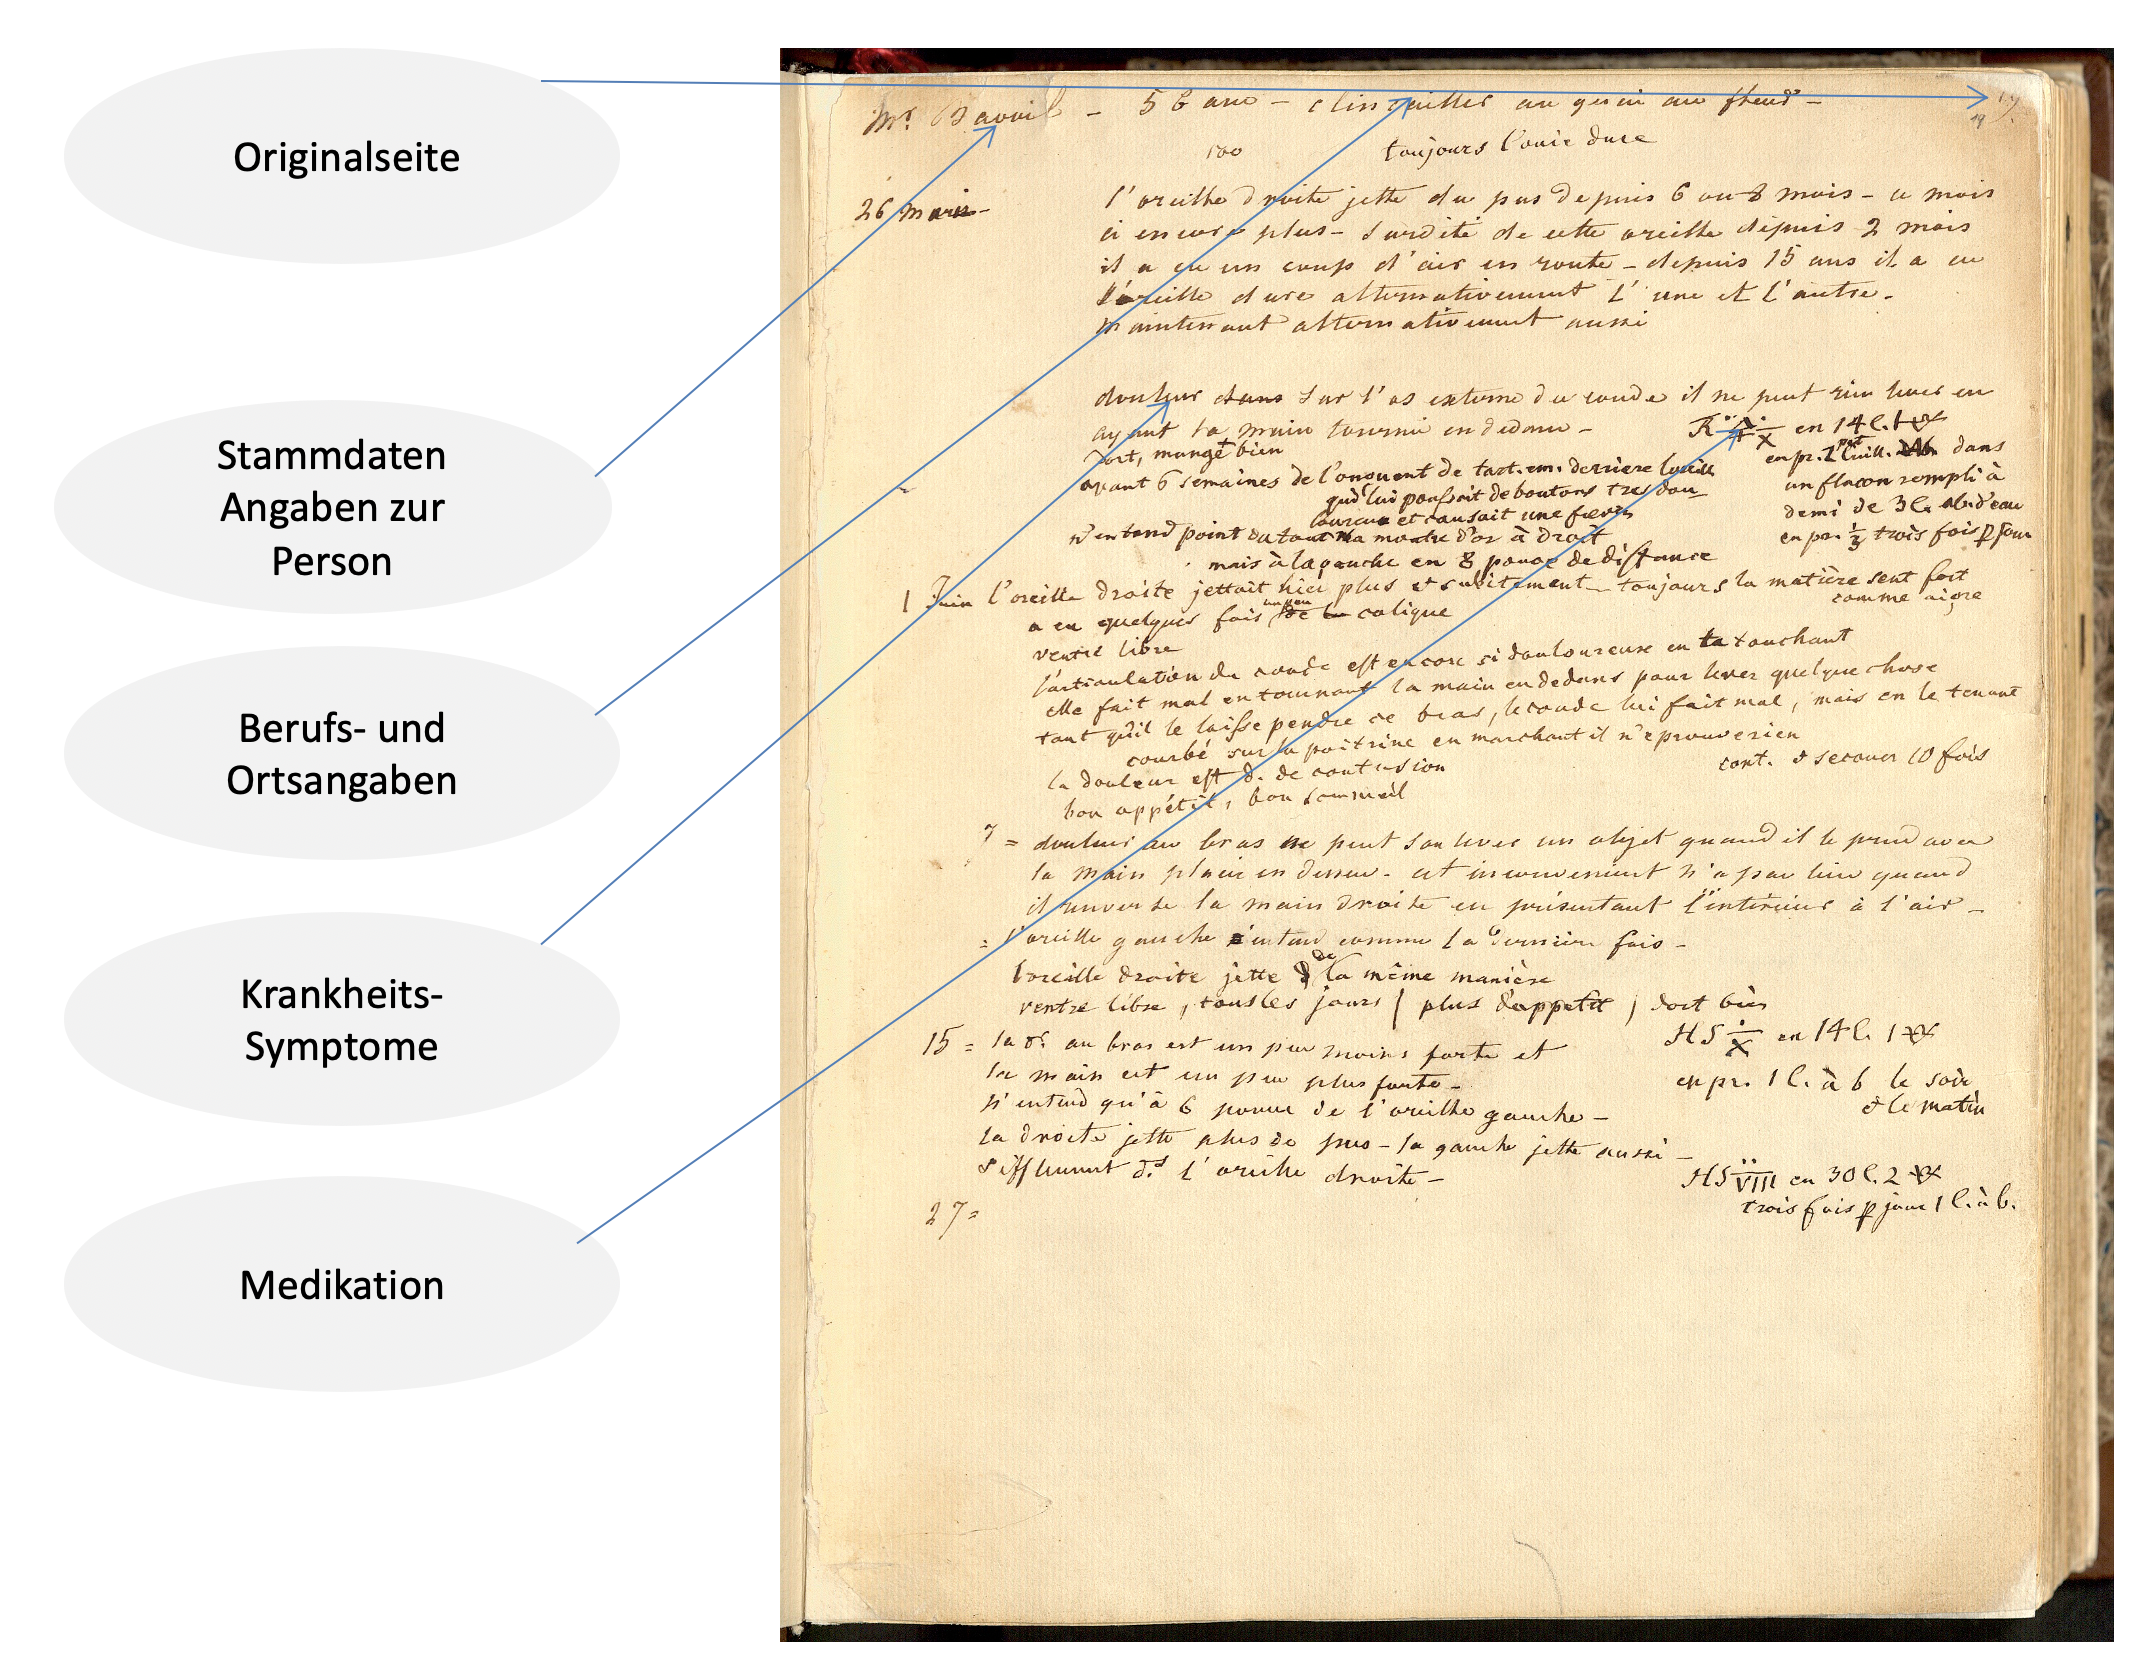 Originalseite
Stammdaten
Angaben zur
Person
Berufs- und
Ortsangaben
Krankheits-
Symptome
Medikation
Mr. — 56 ans — au —
toujours l'ouie dure
26
l'oreille droite jette du pus depuis 6 ou 8 mois — ce mois
ci encore plus — surdité de cette oreille depuis 2 mois
il a eu un coup d'air en route — depuis 15 ans il a eu
l'oreille dure alternativement l'une et l'autre.
maintenant alternativement aussi
douleur dans sur l'os externe du coude il ne peut rien lever en
ayant la main tournée en dedans —
dort, mange bien
en 14 c. 1
en pr. 1 cuill. dans
un flacon rempli à
demi de 3 d'eau
en pr. 1/3 trois fois p jour
avant 6 semaines de l'onguent de tart. em. derriere
lui poussait de boutons tres dou
et causait une fievre
n'entend point du tout la montre d'or à droit
mais à la gauche en 8 de distance
1 Juin l'oreille droite jettait hier plus et subitement — toujours la matière sent fort
comme aigre
a eu quelques fois un peu de colique
ventre libre
l'articulation du coude est encore si douloureuse en la touchant
elle fait mal en tournant la main en dedans pour lever quelque chose
tant qu'il le laisse pendre ce bras, le coude lui fait mal, mais en le tenant
courbé sur la poitrine en marchant il n'eprouve rien
la douleur est d. de contusion
cont. & secouer 10 fois
bon appétit, bon sommeil
7 = douleur au bras ne peut soulever un objet quand il le prend avec
la main en dessus — cet inconvenient n'a pas lieu quand
il renverse la main droite en présentant l'intérieur à l'air —
= l'oreille gauche entend comme la dernière fois —
l'oreille droite jette de la même manière
ventre libre, tous les jours plus d'appetit dort bien
HS en 14 c. 1
15 = la dr. au bras est un peu moins forte et
la main est un peu plus forte —
en pr. 1 c. à b le soir
& le matin
n'entend qu'à 6 de l'oreille gauche —
la droite jette plus de pus — la gauche jette aussi —
sifflement ds l'oreille droite —
HS VIII en 30 c. 2
trois fois p jour 1 c. à b.
27 =